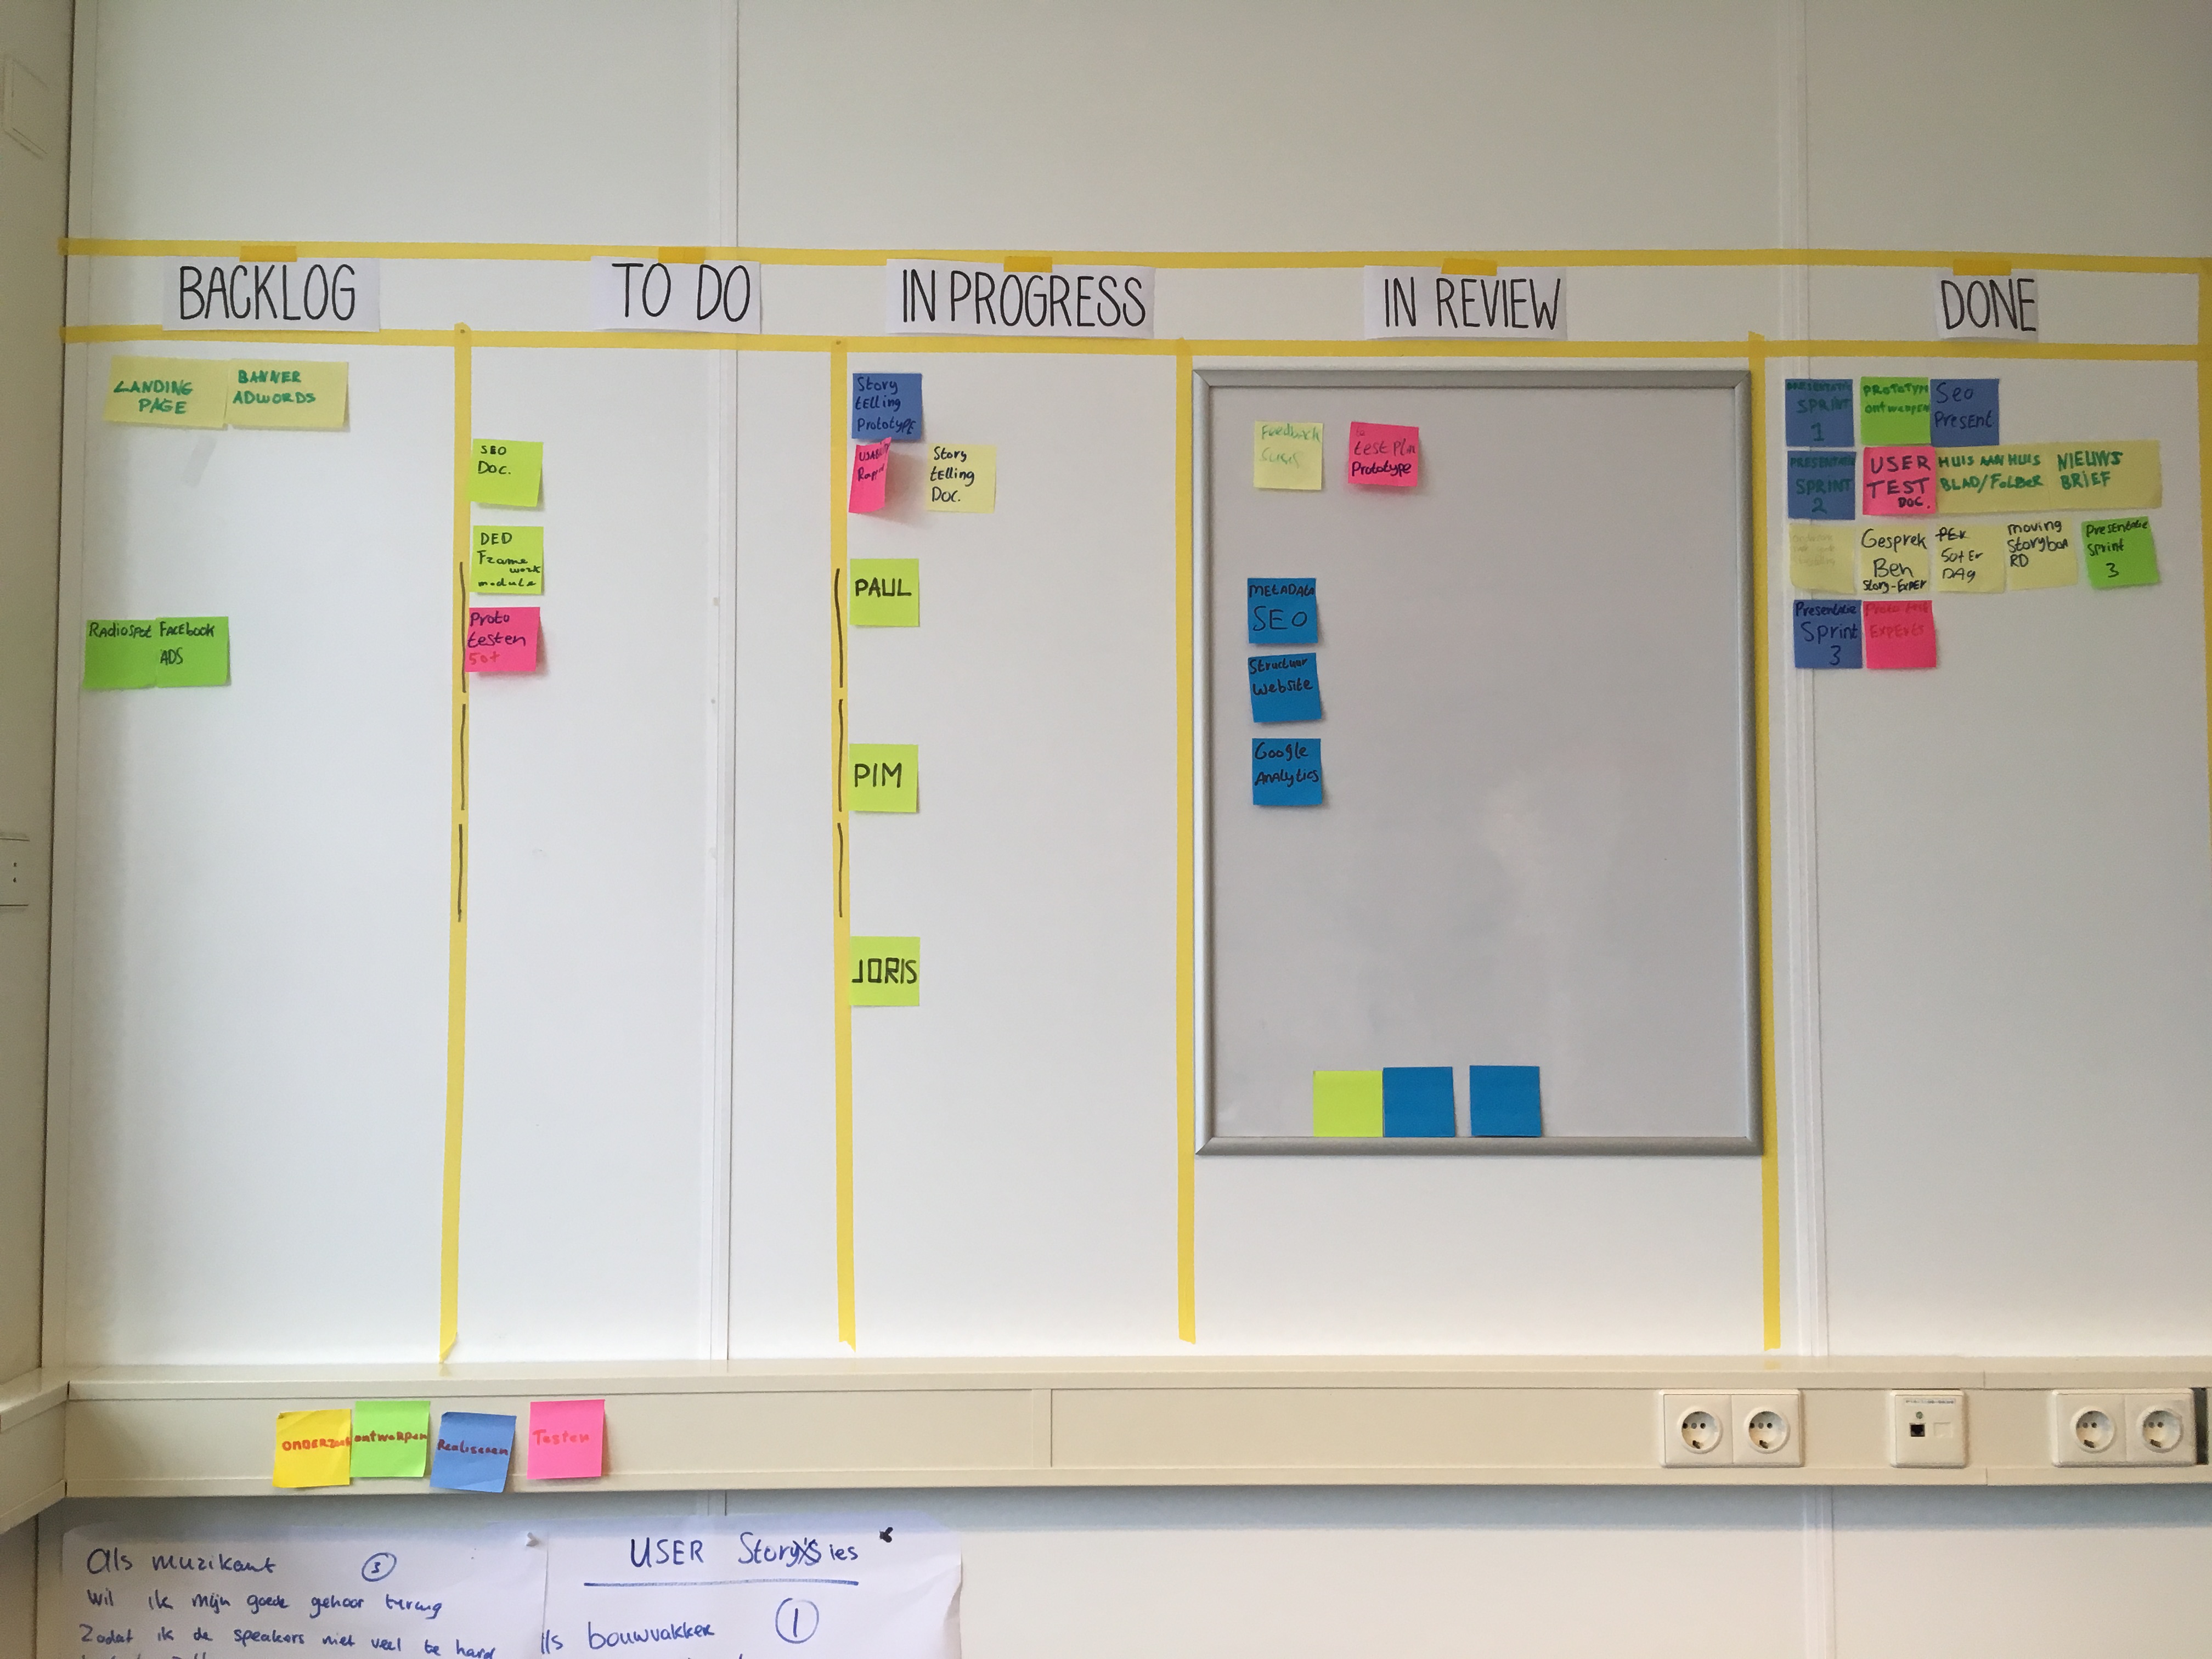 BACKLOG
TO DO
IN PROGRESS
IN REVIEW
DONE
LANDING
PAGE
BANNER
ADWORDS
Radiospot
Facebook
ADS
SEO
Doc.
DED
Frame
work
module
Proto
testen
50+
Story
telling
Prototype
Story
telling
Doc.
PAUL
PIM
JORIS
Feedback
test plan
Prototype
METADATA
SEO
Structuur
website
Google
Analytics
PRESENTATIE
SPRINT
1
PROTOTYPE
ontwerpen
Seo
Present
PRESENTATIE
SPRINT
2
USER
TEST
DOC.
HUIS AAN HUIS
BLAD/FOLDER
NIEUWS
BRIEF
Gesprek
Ben
Story-Exper
50+er
DAg
moving
Storyboa
RD
Presentatie
Sprint
3
Presentatie
Sprint
3
Proto test
Experts
onderzoek
ontwerpen
Realiseren
Testen
Als muzikant 3
Wil ik mijn goede gehoor terug
Zodat ik de speakers niet veel te hard
USER Story's ies
ls bouwvakker 1